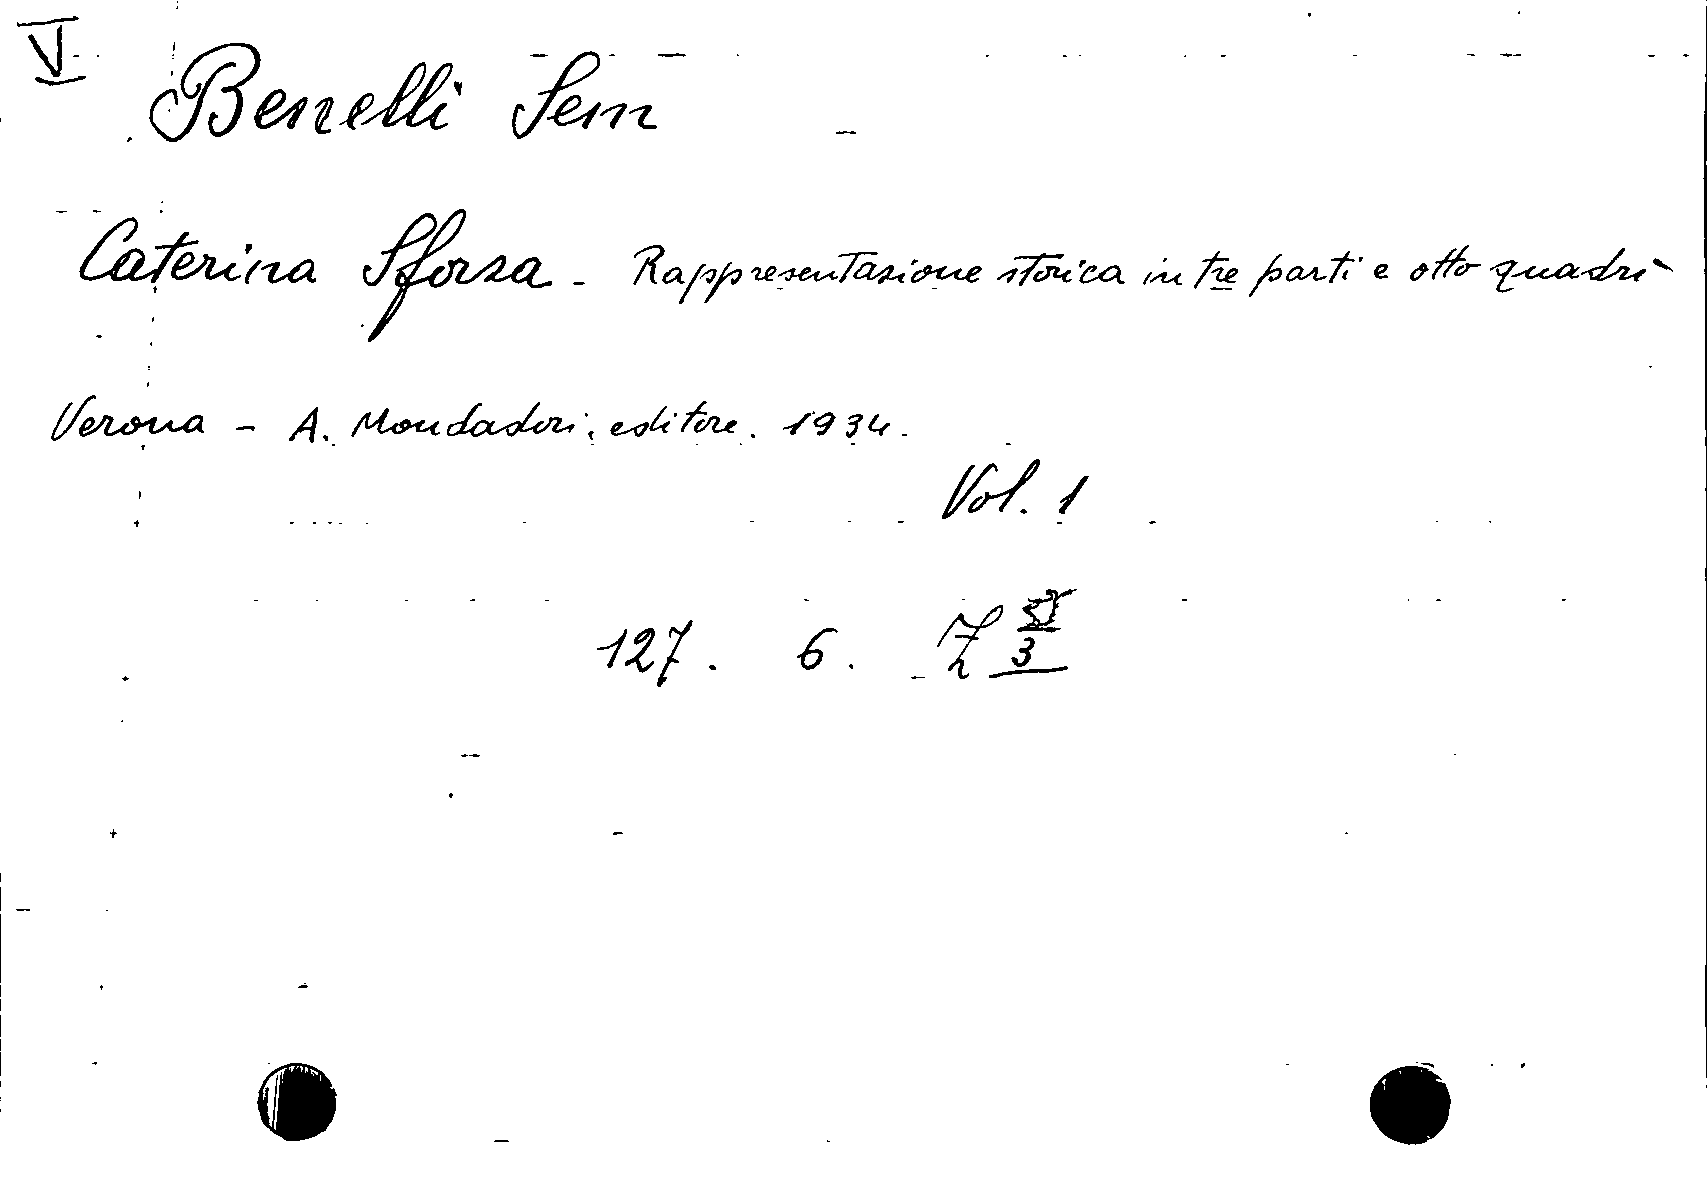 V
Benelli Sem
Caterina Sforza - Rappresentazione storica in tre parti e otto quadri
Verona - A. Mondadori, editore. 1934.
Vol. 1
127. 6. Z
3